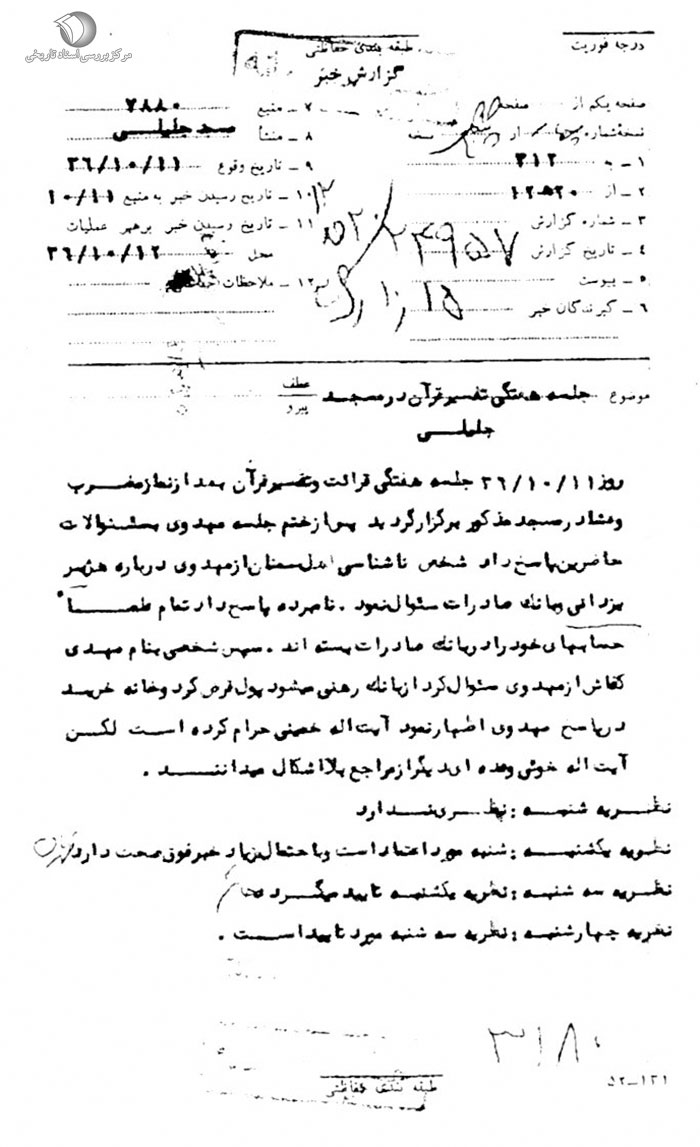 مرکز بررسی اسناد تاریخی
درجه فوریت
طبقه بندی حفاظتی
گزارش خبر
صفحه یکم از صفحه
نسخه شماره چهار از نسخه
۱ ـ به ۳۱۲
۲ ـ از ۱۲ﻫ۲۰
۳ ـ شماره گزارش ۲۳۹۵۷
۴ ـ تاریخ گزارش
۵ ـ پیوست
۶ ـ گیرندگان خبر
۷ ـ منبع ۷۸۸۰
۸ ـ منشأ مسجد جلیلی
۹ ـ تاریخ وقوع ۳۶/۱۰/۱۱
۱۰ ـ تاریخ رسیدن خبر به منبع ۱۰/۱۱
۱۱ ـ تاریخ رسیدن خبر برهبر عملیات
محل ۳۶/۱۰/۱۲
۱۲ ـ ملاحظات حفاظتی
موضوع جلسه هفتگی تفسیر قرآن در مسجد
جلیلی
عطف
پیرو
روز ۳۶/۱۰/۱۱ جلسه هفتگی قرائت و تفسیر قرآن بعد از نماز مغرب
و عشاء در مسجد مذکور برگزار گردید پس از ختم جلسه مهدوی بسئوالات
حاضرین پاسخ داد شخص ناشناسی اهل سمنان از مهدوی درباره هژبر
یزدانی و بانک صادرات سئوال نمود . نامبرده پاسخ داد تمام علماء
حسابهای خود را در بانک صادرات بسته اند . سپس شخصی بنام مهدی
کفاش از مهدوی سئوال کرد از بانک رهنی میشود پول قرض کرد و خانه خرید
در پاسخ مهدوی اظهار نمود آیت اله خمینی حرام کرده است لکن
آیت اله خوئی و عده ای دیگر از مراجع بلااشکال میدانند .
نظریه شنبه : نظری ندارد
نظریه یکشنبه : شنبه مورد اعتماد است و با احتمال زیاد خبر فوق صحت دارد
نظریه سه شنبه : نظریه یکشنبه تایید میگردد
نظریه چهارشنبه : نظریه سه شنبه مورد تایید است .
۳۱۸۰
۵۲ـ۱۲۱
طبقه بندی حفاظتی